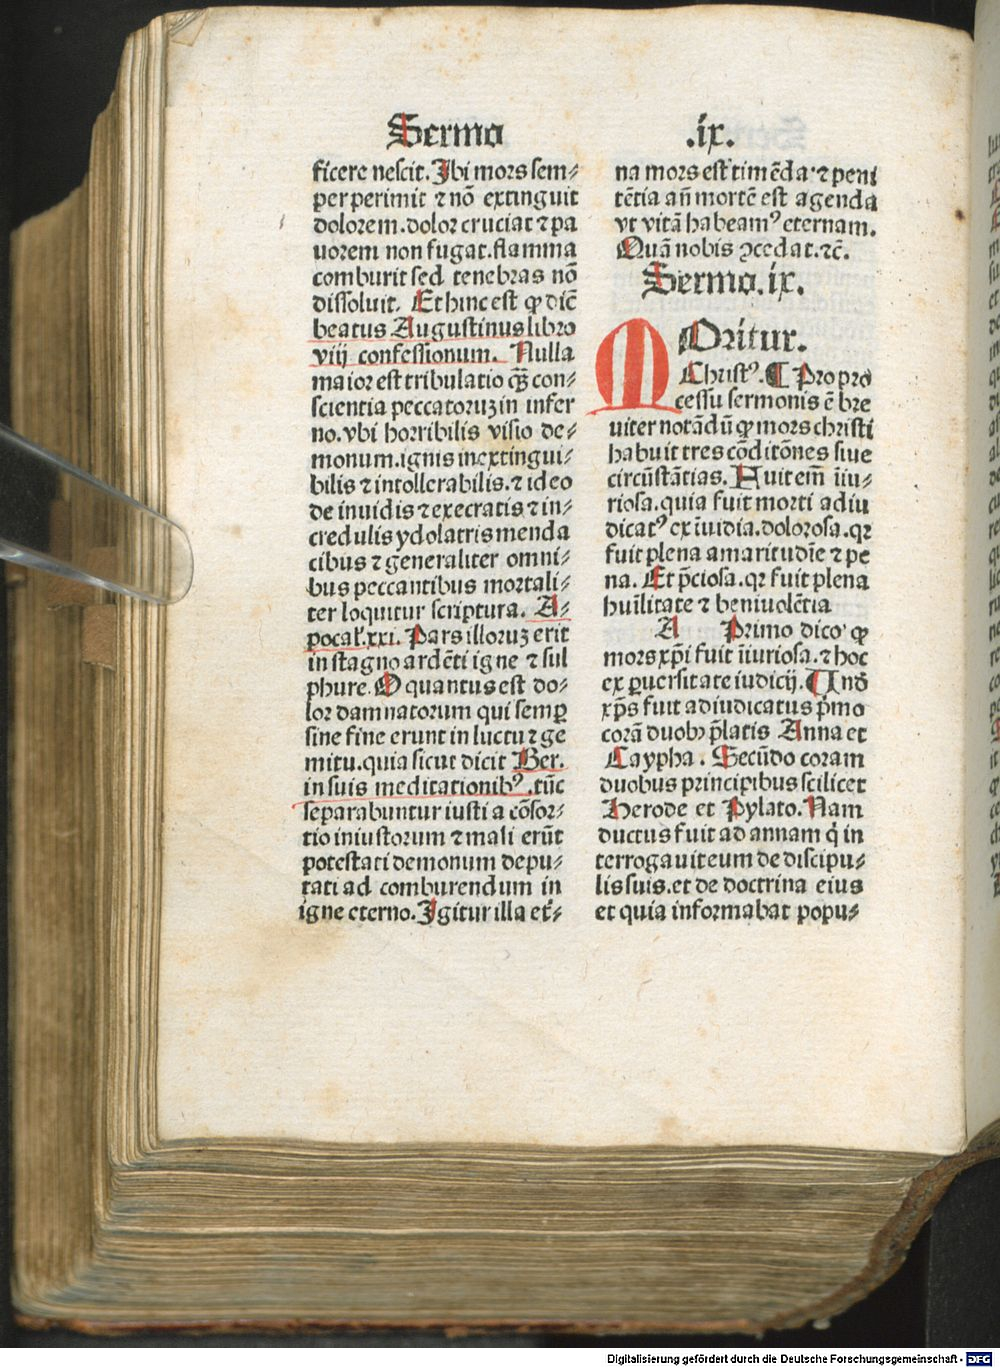 Sermo .ix.
ficere nescit. Ibi mors sem⸗
per perimit ⁊ nō extinguit
dolorem. dolor cruciat ⁊ pa
uorem non fugat. flamma
comburit sed tenebras nō
dissoluit. Et hinc est ꝙ dicē
beatus Augustinus libro
viij confessionum. Nulla
maior est tribulatio qꝫ con⸗
scientia peccatoruꝫ in infer
no. vbi horribilis visio de⸗
monum. ignis inextingui⸗
bilis ⁊ intollerabilis. ⁊ ideo
de inuidis ⁊ execratis ⁊ in⸗
credulis ydolatris menda
cibus ⁊ generaliter omni⸗
bus peccantibus mortali⸗
ter loquitur scriptura. A⸗
pocal'. xxi. Pars illoruꝫ erit
in stagno ardēti igne ⁊ sul
phure. O quantus est do⸗
lor damnatorum qui semꝑ
sine fine erunt in luctu ⁊ ge
mitu. quia sicut dicit Ber.
in suis meditationibꝰ. tūc
separabuntur iusti a cōsor⸗
tio iniustorum ⁊ mali erūt
potestati demonum depu⸗
tati ad comburendum in
igne eterno. Igitur illa et'⸗
na mors est timēda. ⁊ peni
tētia añ mortē est agenda
vt vitā habeamꝰ eternam.
Quā nobis ↄcedat. ⁊c̄.
Sermo. ix.
MOritur.
Christꝰ. ¶ Pro pro
cessu sermonis ē bre
uiter notādū ꝙ mors christi
habuit tres cōditōnes siue
circūstātias. Fuit em̄ iīu⸗
riosa. quia fuit morti adiu
dicatꝰ ex iuidia. dolorosa. qꝛ
fuit plena amaritudīe ⁊ pe
na. Et p̄ciosa. qꝛ fuit plena
huīlitate ⁊ beniuolētia
A Primo dico ꝙ
mors xp̄i fuit iīuriosa. ⁊ hoc
ex ꝑuersitate iudicij. ¶ Nō
xp̄s fuit adiudicatus p̄mo
corā duobꝫ p̄latis Anna et
Caypha. Secūdo coram
duobus principibus scilicet
Herode et Pylato. Nam
ductus fuit ad annam q̇ in
terrogauit eum de discipu⸗
lis suis. et de doctrina eius
et quia informabat popu⸗
Digitalisierung gefördert durch die Deutsche Forschungsgemeinschaft - DFG